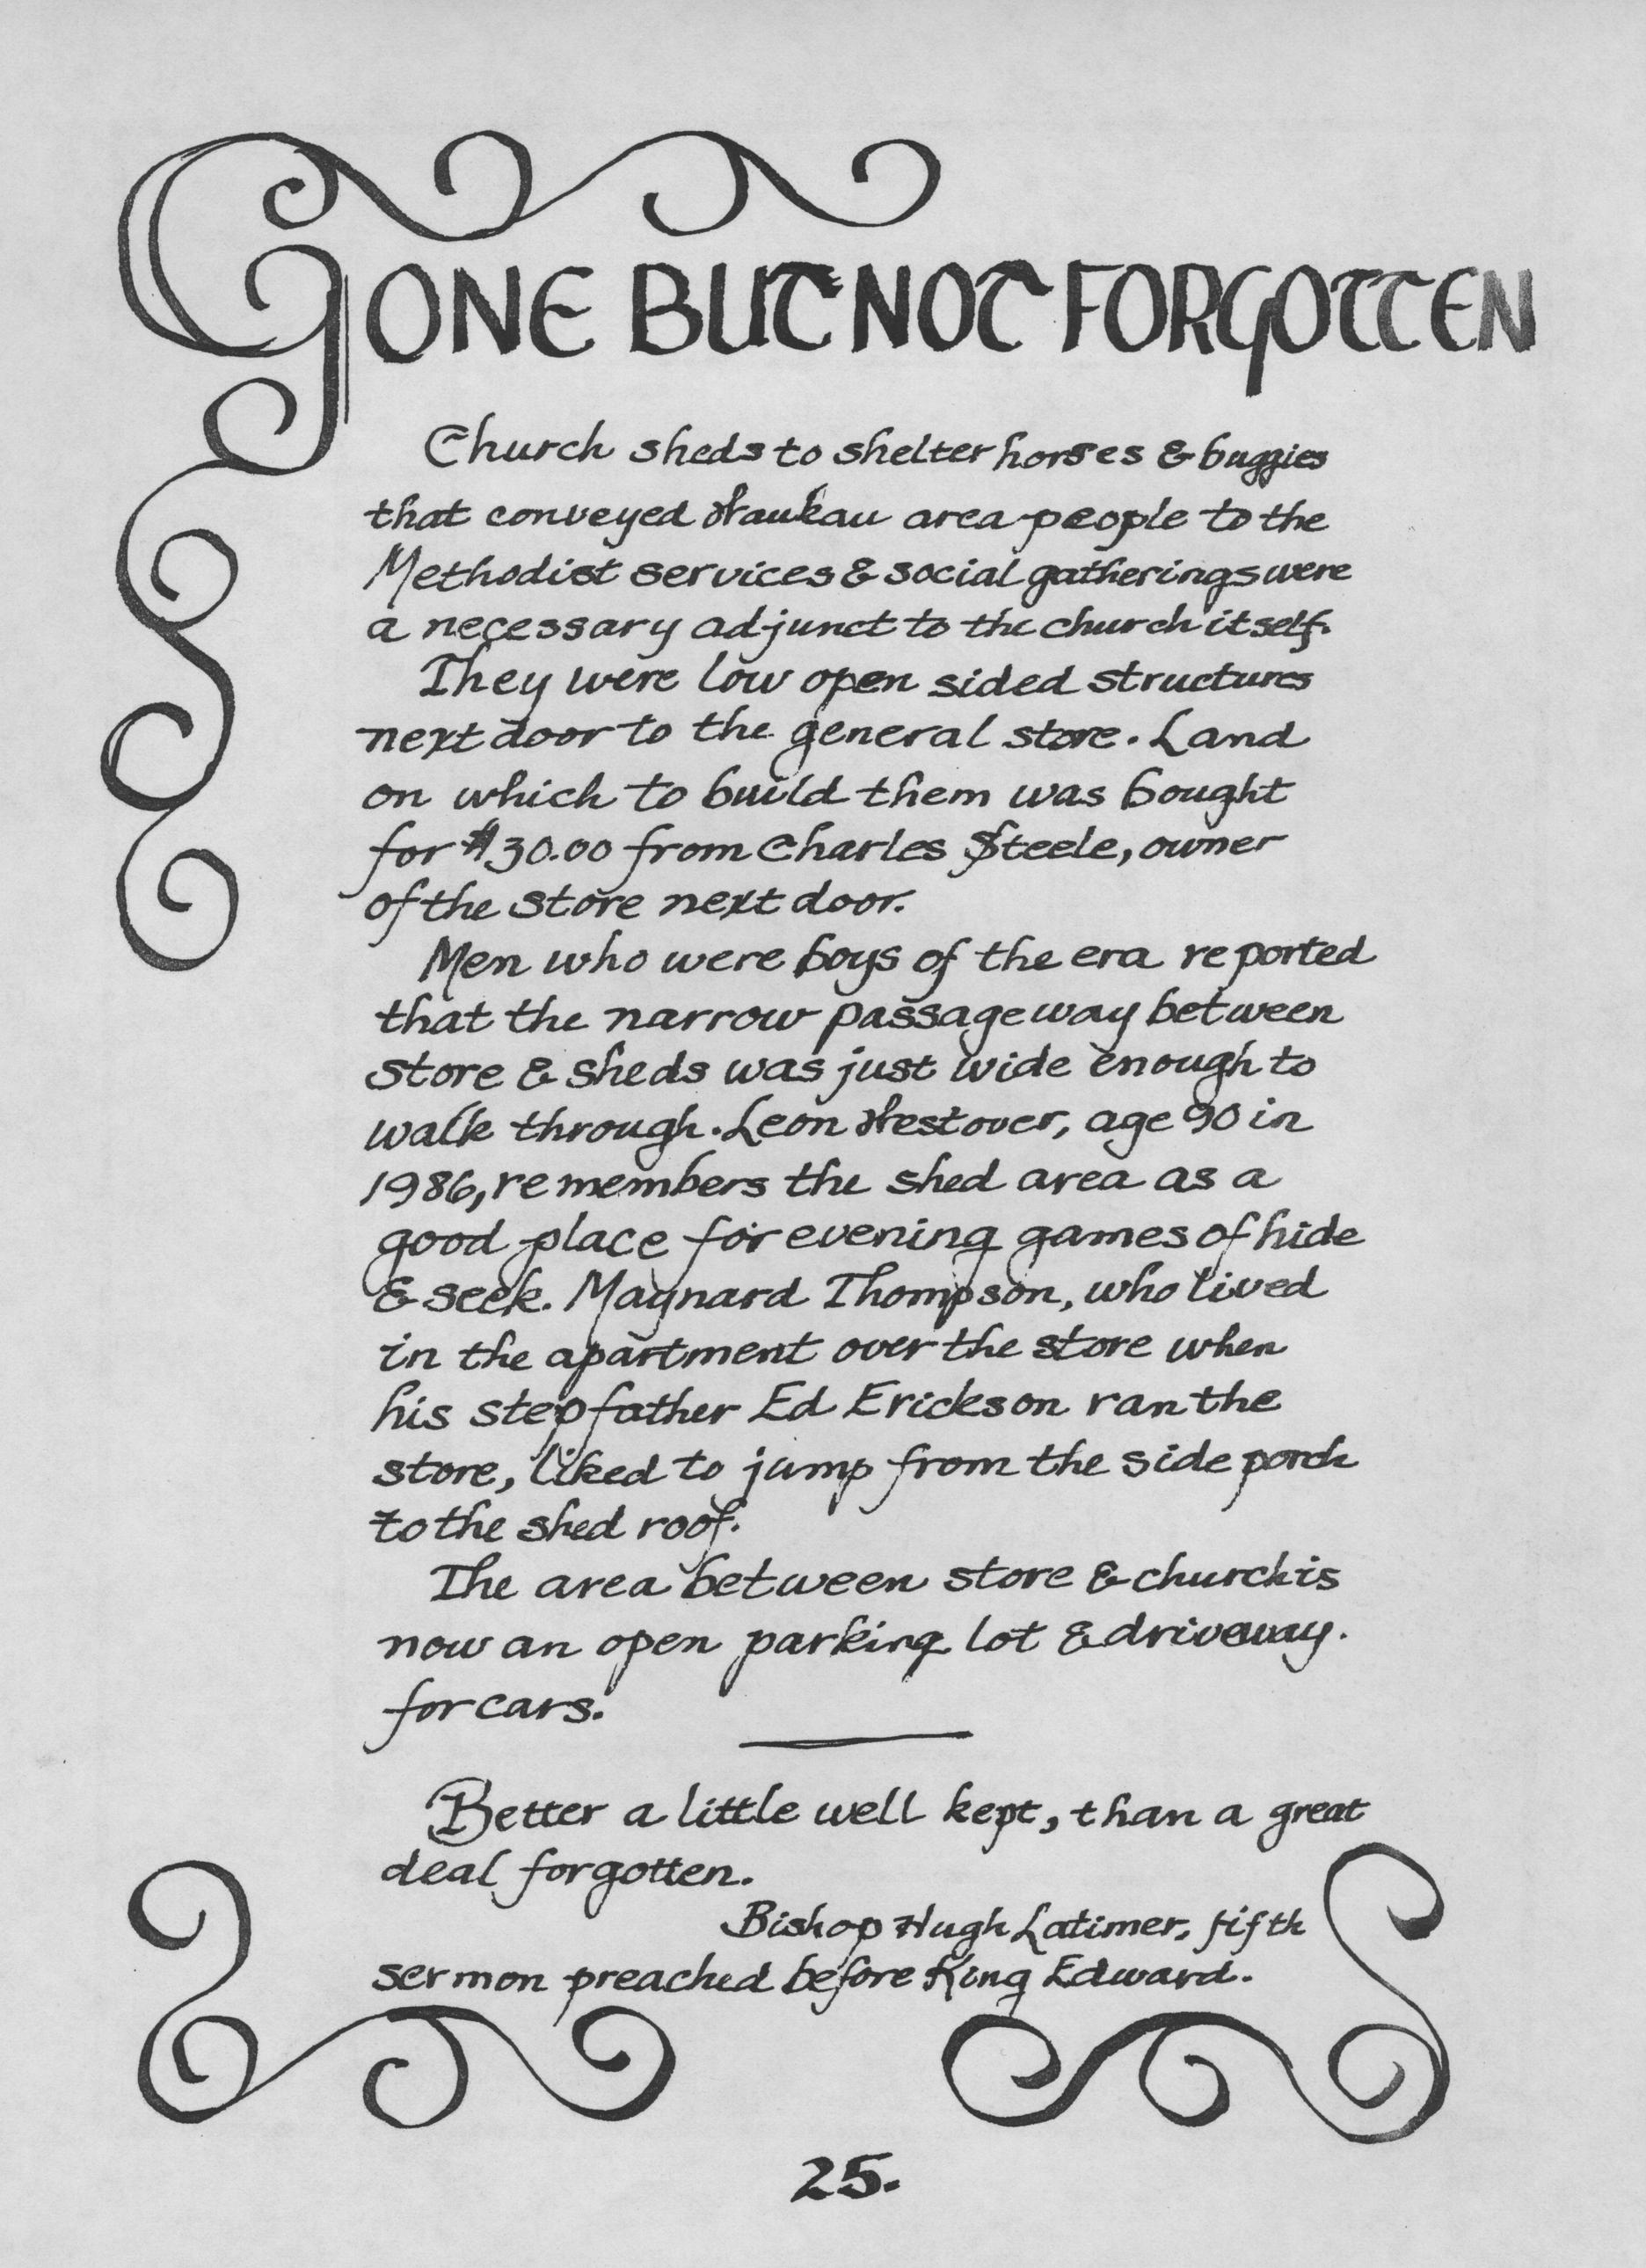 GONE BUT NOT FORGOTTEN
Church sheds to shelter horses & buggies
that conveyed Waukau area people to the
Methodist services & social gatherings were
a necessary adjunct to the church itself.
They were low open sided structures
next door to the general store. Land
on which to build them was bought
for $30.00 from Charles Steele, owner
of the store next door.
Men who were boys of the era reported
that the narrow passageway between
store & sheds was just wide enough to
walk through. Leon Westover, age 90 in
1986, remembers the shed area as a
good place for evening games of hide
& seek. Maynard Thompson, who lived
in the apartment over the store when
his stepfather Ed Erickson ran the
store, liked to jump from the side porch
to the shed roof.
The area between store & church is
now an open parking lot & driveway.
for cars.
Better a little well kept, than a great
deal forgotten.
Bishop Hugh Latimer, fifth
sermon preached before King Edward.
25.